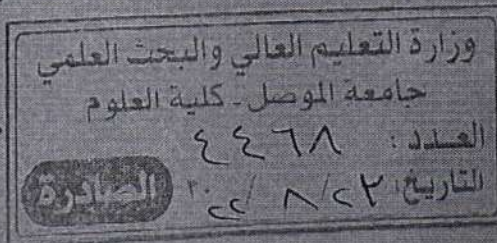 وزارة التعليم العالي والبحث العلمي
جامعة الموصل - كلية العلوم
العدد : ٤٤٦٨
التاريخ: ٢٣ / ٨ / ٢٠٢٢
الصادرة